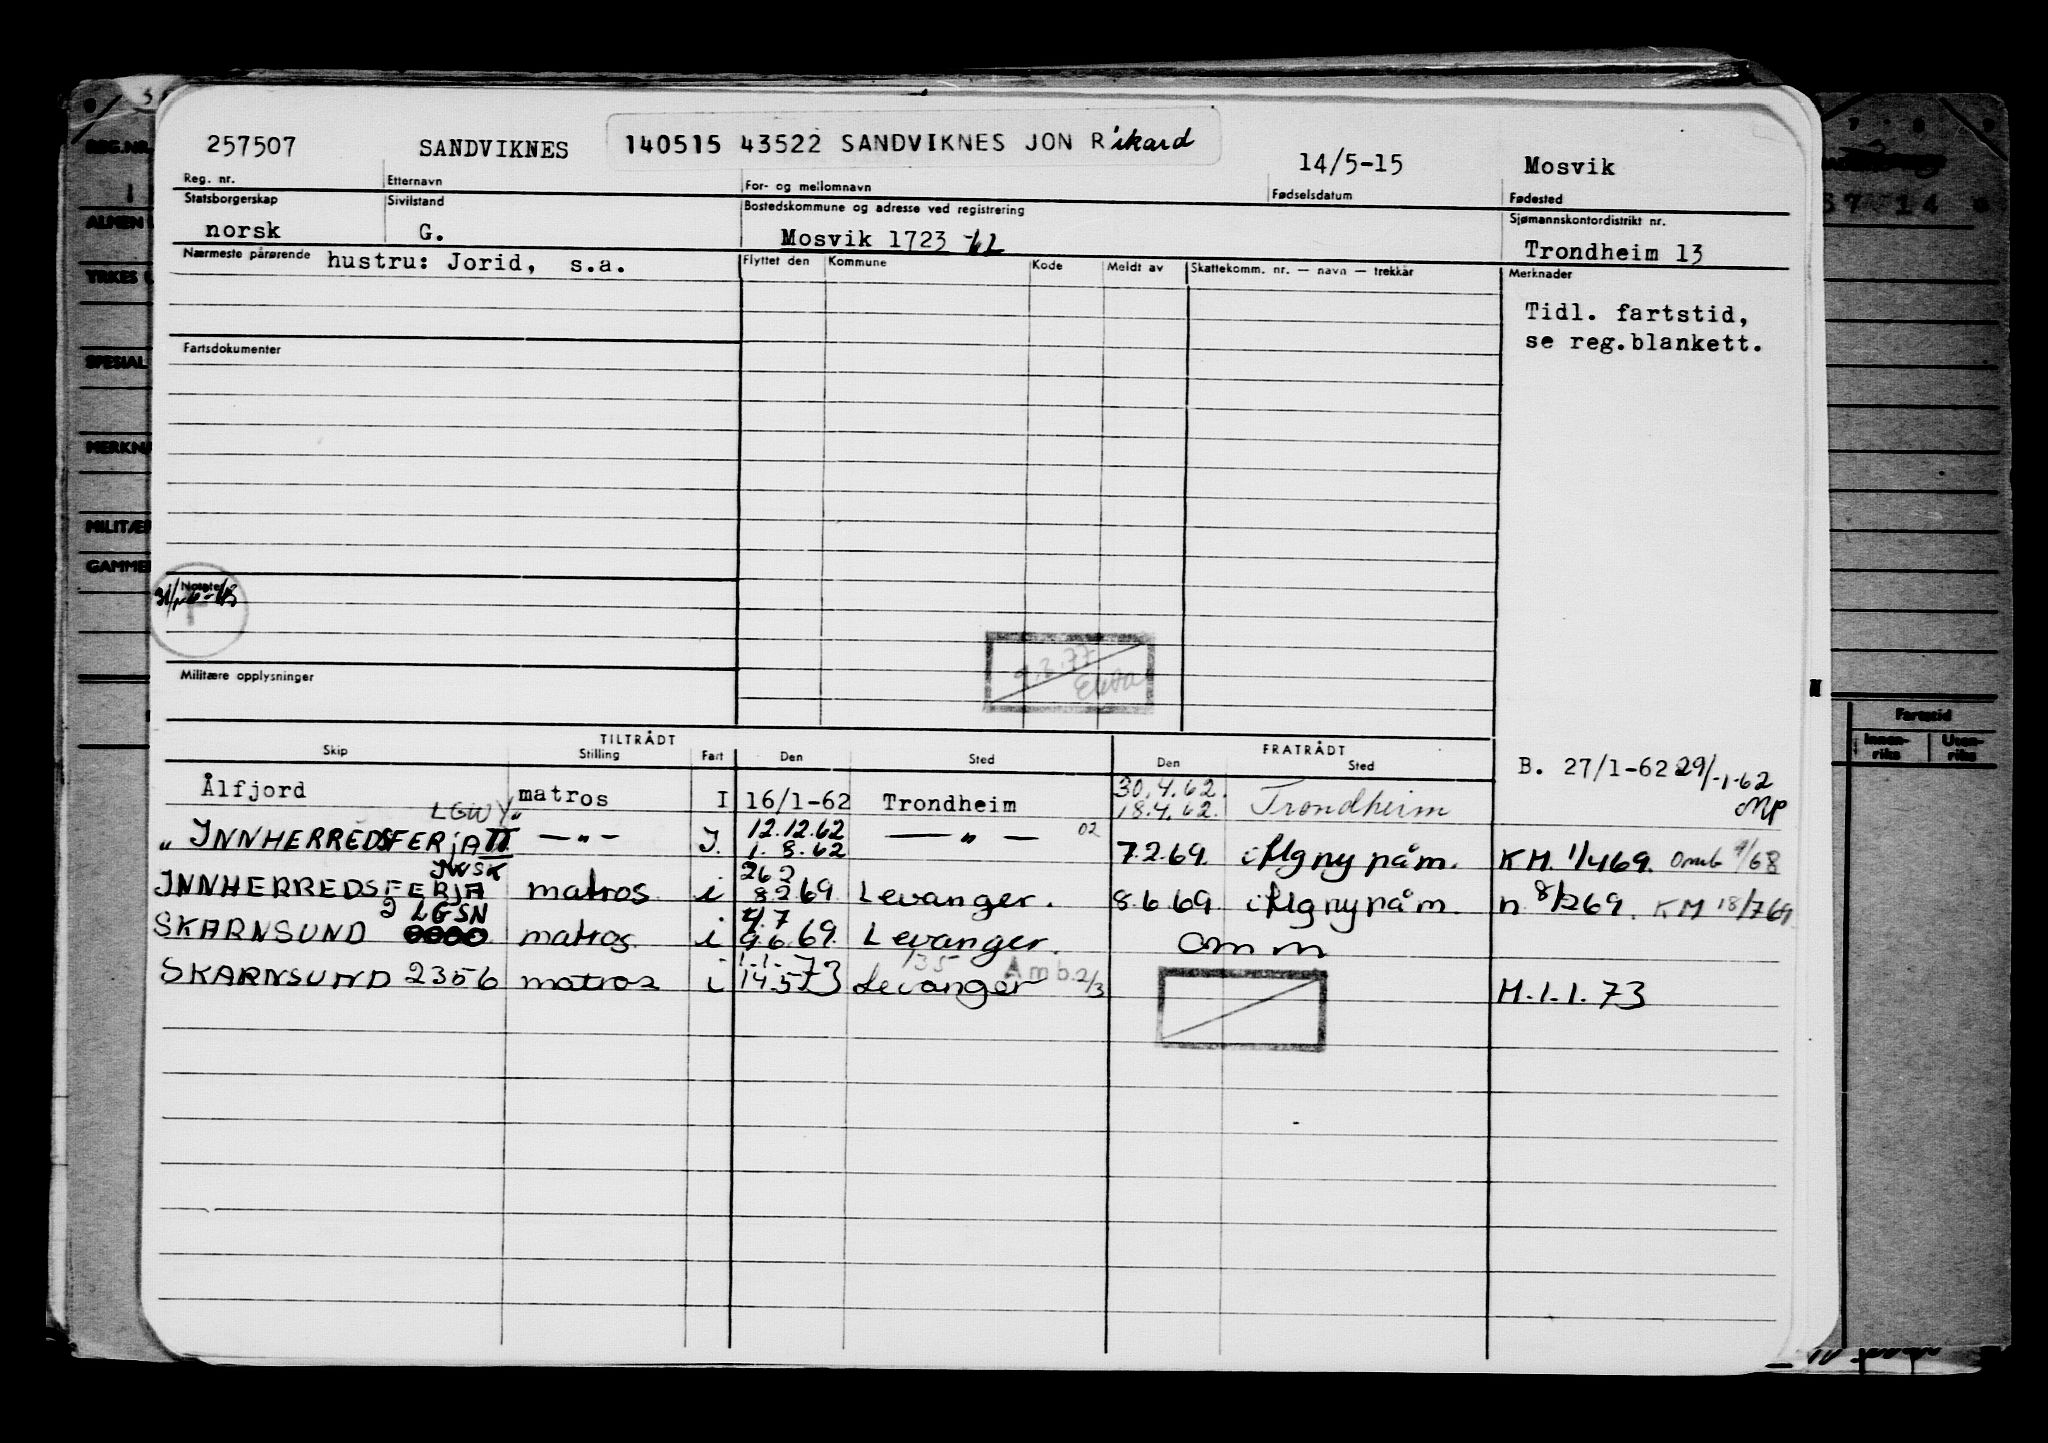 257507 SANDVIKNES 140515 43522 SANDVIKNES JON Rikard 14/5-15 Mosvik
Reg. nr. Etternavn For- og mellomnavn Fødselsdatum Fødested
Statsborgerskap Sivilstand Bostedskommune og adresse ved registrering Sjømannskontordistrikt nr.
norsk G. Mosvik 1723 -62 Trondheim 13
Nærmeste pårørende hustru: Jorid, s.a. Flyttet den Kommune Kode Meldt av Skattekomm. nr. — navn — trekkår Merknader
Tidl. fartstid,
se reg.blankett.
Fartsdokumenter
Notater
9.2.77
Militære opplysninger
TILTRÅDT FRATRÅDT
Skip Stilling Fart Den Sted Den Sted
B. 27/1-62 29/-1-62
MP
Ålfjord matros I 16/1-62 Trondheim 30.4.62. 18.4.62. Trondheim
LGWY
„ INNHERREDSFERJA II — „ — I. 12.12.62 1.8.62 — „ — 02 7.2.69. i Mg ny påm. KM. 1/4 69. Omb 9/68
JWSK
INNHERREDSFERJA matros i 26 2 8.2 69 Levanger. 8.6 69. i Mg ny påm. n 8/2 69. KM 18/7 69.
2 LGSN
SKARNSUND matros i 4.7 9.6.69. Levanger. omm
SKARNSUND 2356 matros i 1.1. 14.5 73 Levanger 135 Amb. 2/3 M.1.1.73
REG.NR.
ALMEN
YRKES
SPESIAL
MERKNA
MILITÆR
GAMMEL
Fartstid
Innen-riks Uten-riks